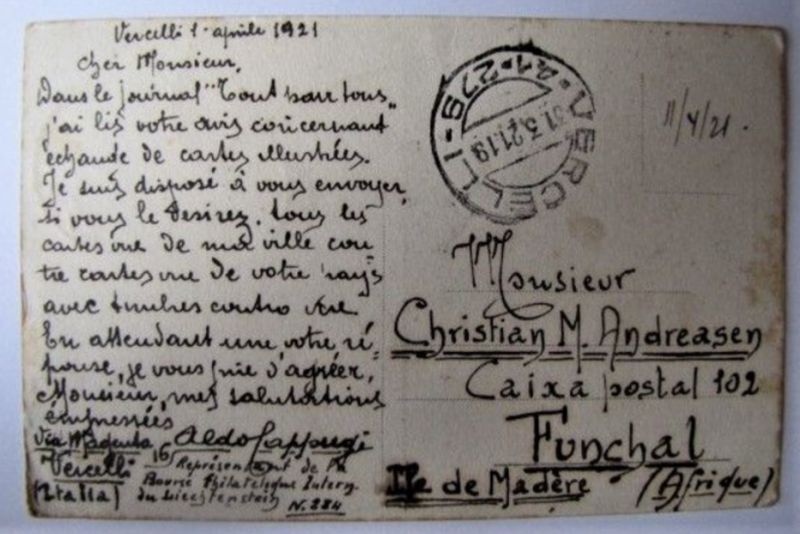 Vercelli 1. aprile 1921
Cher Monsieur,
Dans le journal "Tout pour tous"
j'ai lis votre avis concernant
echande de cartes illustrées.
Je suis disposé à vous envoyer,
si vous le desirez, tous les
cartes vue de ma ville con-
tre cartes vue de votre pays
avec timbres contro vue
En attendant une votre ré-
ponse, je vous prie d'agréer,
Monsieur, mes salutations
empressées
Aldo
Via Magenta 16
Vercelli
(Italia)
Représentant de la
Bourse Philatelique Intern.
du Liechtenstein
N. 284
VERCELLI
31.3.21.19
11/4/21.
Monsieur
Christian M. Andreasen
Caixa postal 102
Funchal
Ile de Madère (Afrique)